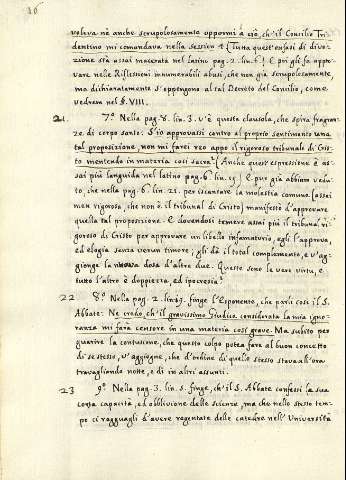 16
voleva nè anche scrupolosamente oppormi a ciò, ch'il Consilio Tri-
dentino mi comandava nella session 4 (Tutta quest'enfasi di divo-
zione stà assai macerata nel latino pag. 2. lin. 6.) E poi gli fa appro-
vare nelle Riflessioni innumerabili abusi, che non già scrupolosamente,
ma dichiaratamente s'oppongono al tal Decreto del Consilio, come
vedrem nel §. VIII.
21. 7.° Nella pag. 8. lin. 3. v'è questa clausola, che spira fragran-
ze di corpo santo: S'io approvassi contro al proprio sentimento una
tal proposizione, non mi farei reo appo il rigoroso tribunal di Cri-
sto mentendo in materia così sacra? (Anche quest'espressione è as-
sai più languida nel latino pag. 6. lin. 15.) E pur già abbiam vedu-
to, che nella pag. 6. lin. 21. per iscantare la molestia comune (assai
men rigorosa, che non è il tribunal di Cristo) manifestò d'approvare
quella tal proposizione. E dovendosi temere assai più il tribunal ri-
goroso di Cristo per approvare un libello infamatorio, egli l'approva,
ed elogia senza verun timore; gli dà il total complemento, e v'ag-
gionge la nuova dosa d'altre due. Queste sono le vere virtù, e
tutto l'altro è doppiezza, ed ipocresia?
22 8.° Nella pag. 2. lin. 9. finge l'Esponente, che parli così il S.
Abbate: Ne credo, ch'il gravissimo Giudice considerata la mia igno-
ranza mi farà censore in una materia così grave. Ma subito per
guarire la contusione, che questo colpo potea fare al buon concetto
di se stesso, v'aggiugne, che d'ordine di quello stesso stava all'ora
travagliando notte, e dì in altri assunti.
23 9.° Nella pag. 3. lin. 5. finge, ch'il S. Abbate confessi la sua
corta capacità, ed obblivione delle scienze, ma che nello stesso tem-
po ci ragguagli d'avere regentate delle catedre nell'Università